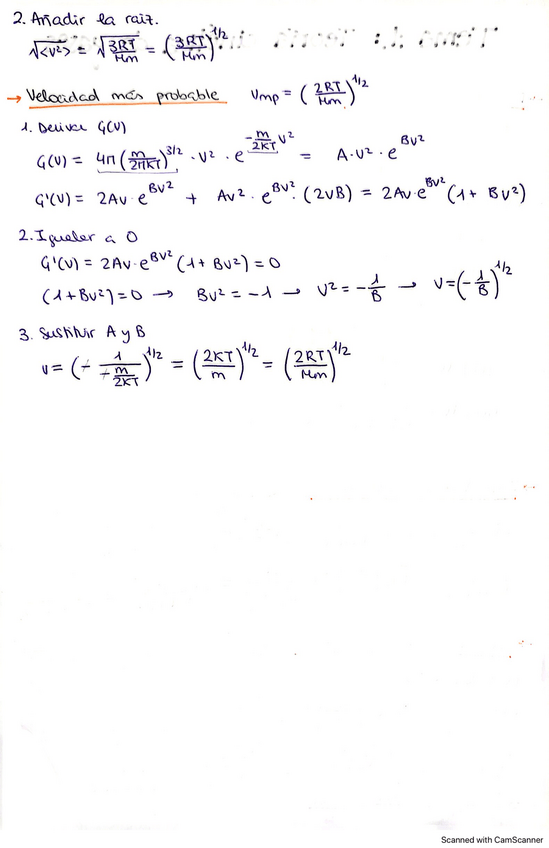 2. Añadir la raíz.
√<v²> = √(3RT/Mm) = (3RT/Mm)^1/2
→ Velocidad más probable   Vmp = (2RT/Mm)^1/2
1. Derivar G(V)
G(V) = 4π (m/2πKT)^3/2 · V² · e^(-m/2KT V²) = A·V²·e^BV²
G'(V) = 2AV·e^BV² + AV²·e^BV²·(2VB) = 2AV·e^BV² (1 + BV²)
2. Igualar a 0
G'(V) = 2AV·e^BV² (1 + BV²) = 0
(1 + BV²) = 0 → BV² = -1 → V² = -1/B → V = (-1/B)^1/2
3. Sustituir A y B
V = (- 1/(-m/2KT))^1/2 = (2KT/m)^1/2 = (2RT/Mm)^1/2
Scanned with CamScanner